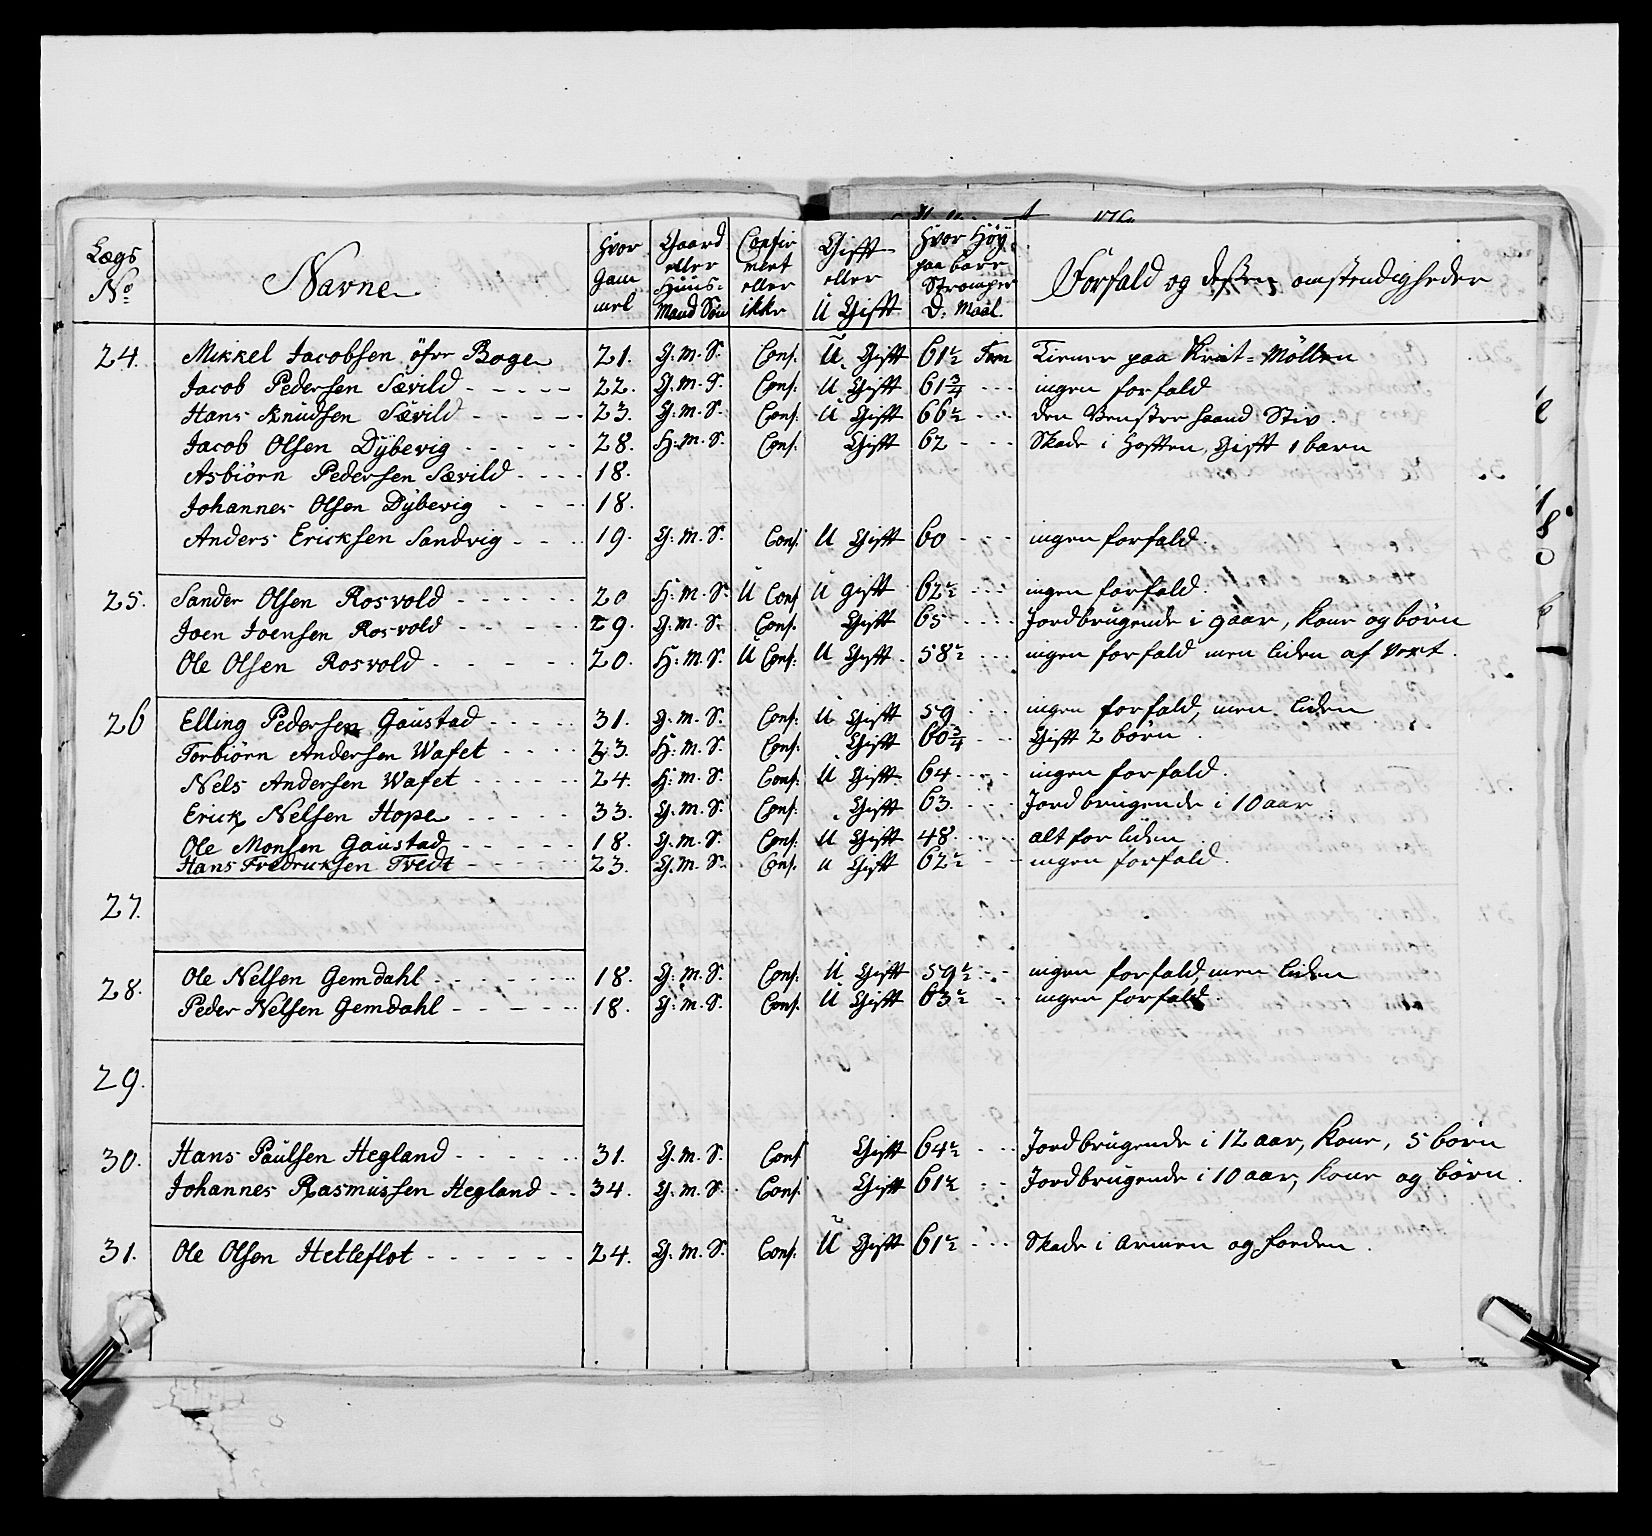 Lægs No | Navne | Hvor Gam mel | Gaard eller Huus= Mand Søn | Confir meret eller ikke | Gift eller U Gift | Hvor Høy paa bare Strømper D: Maal. | Forfald og desses omstendigheder
24. Mikkel Jacobsen öfre Boge 21. G. M. S. Conf. U. Gift 61½ Tom Tiener paa Krut=Möllen
Jacob Pedersen Sævild 22. G. M. S. Conf. U. Gift 61¾ ingen forfald
Hans Knudsen Sævild 23. G. M. S. Conf. U Gift 66½ den Venstre haand Stiv.
Jacob Olsen Dÿbevig 28. H. M. S. Conf. Gift 62 Skade i Hoften, Gift 1 barn
Asbiörn Pedersen Sævild 18.
Johannes Olsen Dÿbevig 18.
Anders Ericksen Sandvig 19. G. M. S. Conf. U Gift 60 ingen forfald.
25. Sander Olsen Rosvold 20 H. M. S. U Conf U Gift 62½ ingen forfald.
Joen Joensen Rosvold 29. G. M. S. Conf. Gift 65 Jordbrugende i 9 aar, Kone og börn
Ole Olsen Rosvold 20. H. M. S. U Conf. U Gift 58½ ingen forfald men liden af Vext.
26 Elling Pedersen Gaustad 31. G. M. S. Conf. U Gift 59 ingen forfald, men liden
Torbiörn Andersen Wafet 23. H. M. S. Conf. Gift 60¾ Gift 2 börn.
Nels Andersen Wafet 24. H. M. S. Conf. U Gift 64 ingen forfald.
Erick Nelsen Hope 33. G. M. S. Conf. Gift 63. Jordbrugende i 10 aar.
Ole Monsen Gaustad 18. G. M. S. Conf. U Gift 48. alt for liden
Hans Fredricksen Tvedt 23. G. M. S. Conf. U Gift 62½ ingen forfald.
27.
28. Ole Nelsen Gemdahl 18. G. M. S. Conf. U Gift 59½ ingen forfald, men liden
Peder Nelsen Gemdahl 18. G. M. S. Conf. U Gift 63½ ingen forfald.
29.
30. Hans Paulsen Hegland 31. G. M. S. Conf Gift 64½ Jordbrugende i 12 aar, Kone, 5 börn
Johannes Rasmussen Hegland 34. G. M. S. Conf. Gift 61½ Jordbrugende i 10 aar, Kone og börn.
31. Ole Olsen Hetleflot 24. G. M. S. Conf. U Gift 61½ Skade i Armen og foeden.